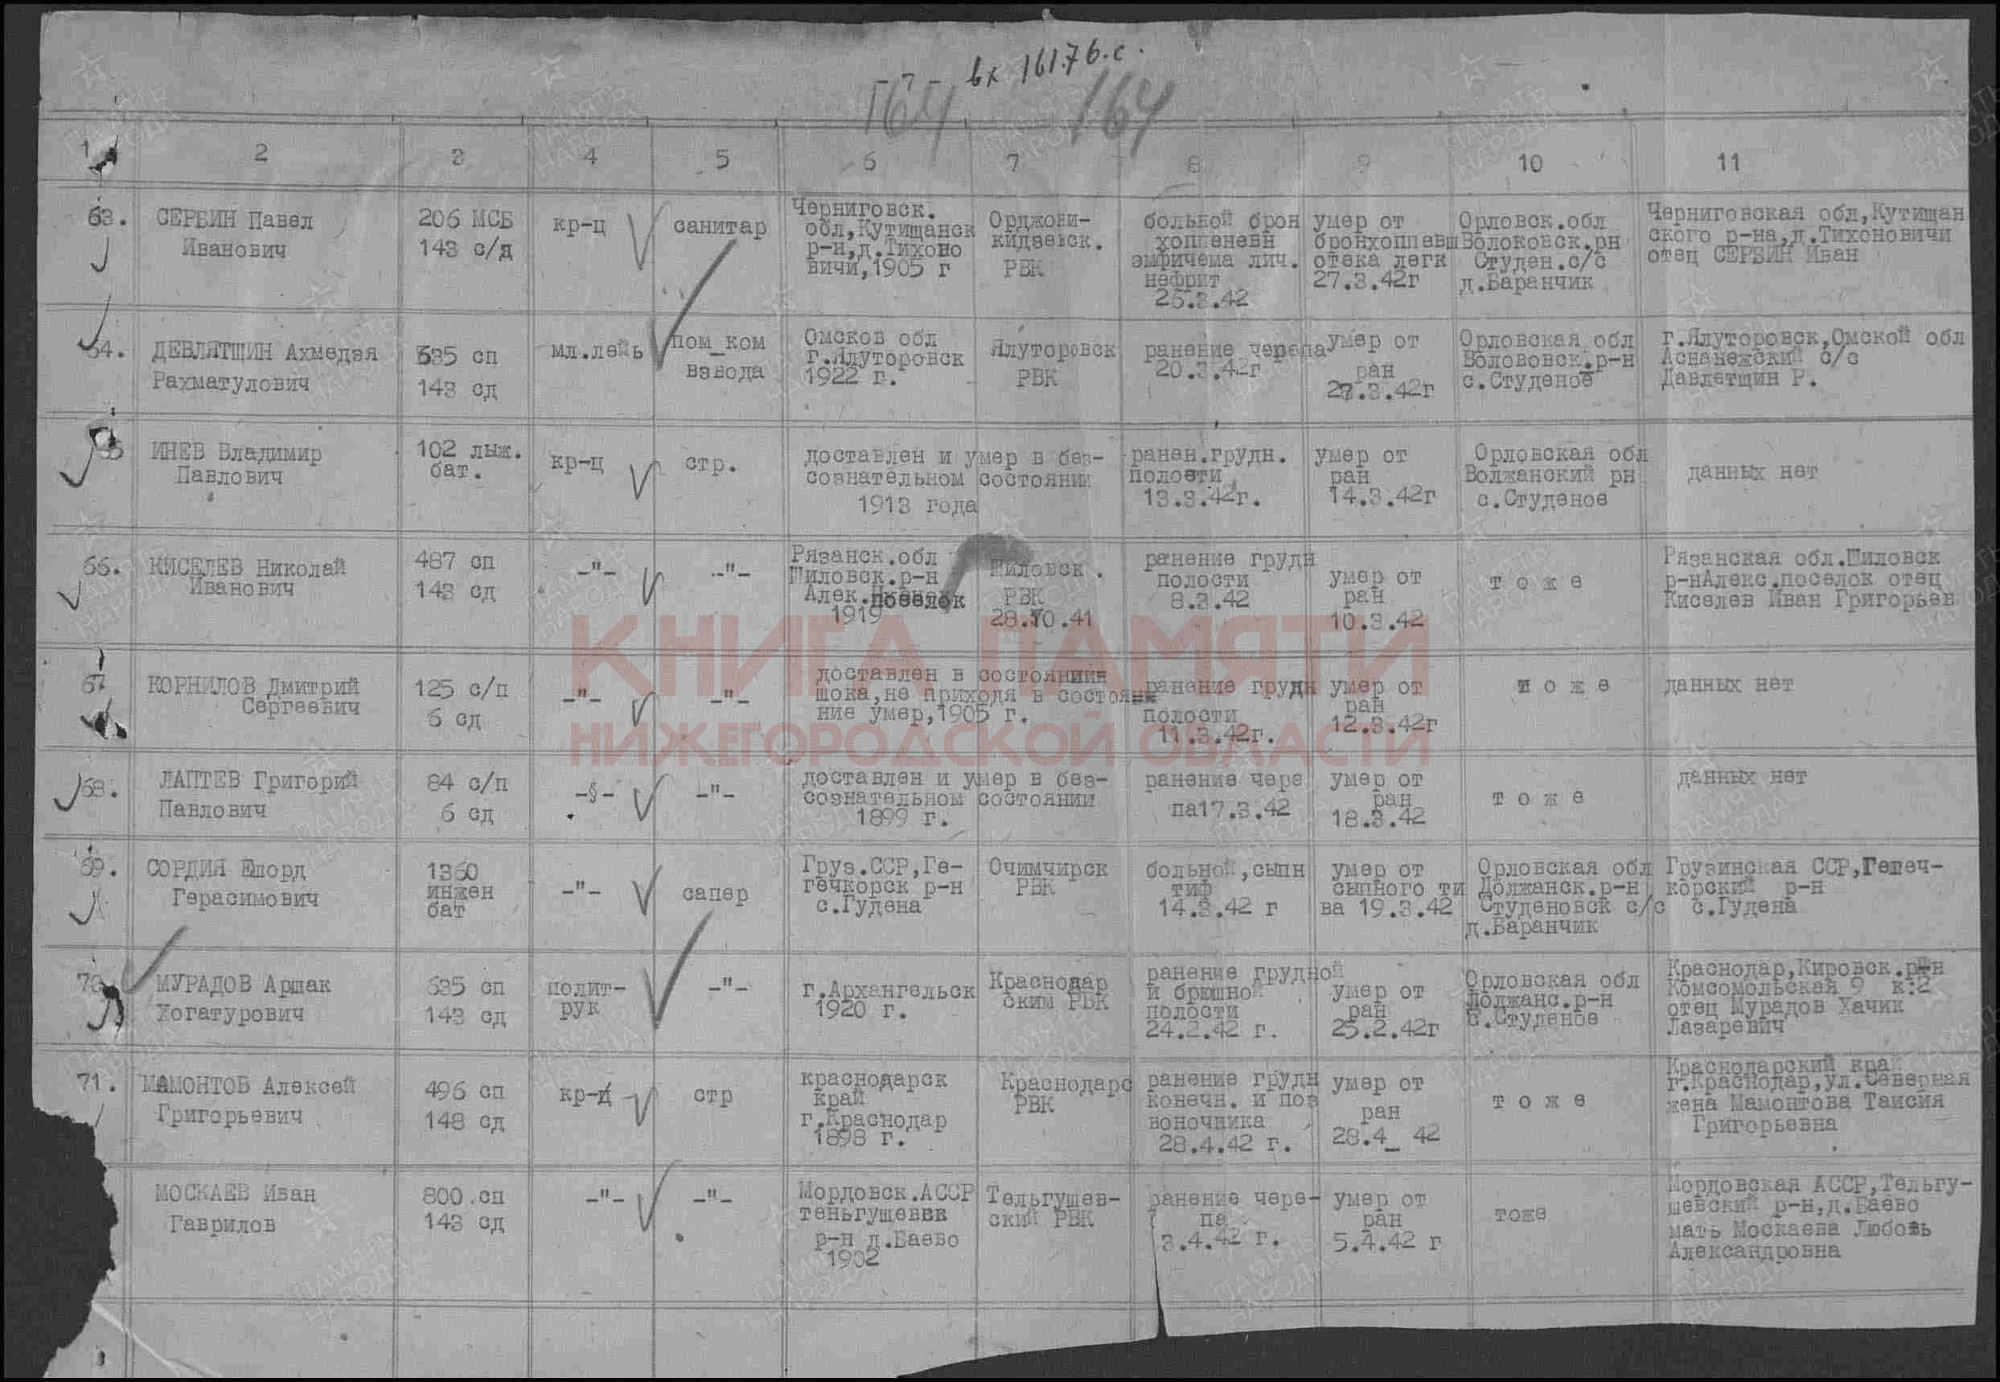 -7- вх 16176.с.
164 164
1 2 3 4 5 6 7 8 9 10 11
63. СЕРБИН Павел Иванович 206 МСБ 143 с/д кр-ц санитар Черниговск. обл,Кутищанск р-н,д.Тихоно вичи,1905 г Орджони- кидзевск. РВК больной брон хоппеневн эмфичема лич. нефрит 25.3.42 умер от бронхоппевш отека легк 27.3.42г Орловск.обл Волоковск.рн Студен.с/с д.Баранчик Черниговская обл,Кутищан ского р-на,д.Тихоновичи отец СЕРБИН Иван
64. ДЕВЛЯТШИН Ахмедзя Рахматулович 635 сп 143 сд мл.лейь пом_ком взвода Омсков обл г.Ялуторовск 1922 г. Ялуторовск РВК ранение черепа 20.3.42г умер от ран 27.3.42г Орловская обл Волововск.р-н с.Студеное г.Ялуторовск,Омской обл Аснанежский с/с Давлетщин Р.
ИНЕВ Владимир Павлович 102 лыж. бат. кр-ц стр. доставлен и умер в без- сознательном состоянии 1913 года ранен.грудн. полости 13.3.42г. умер от ран 14.3.42г Орловская обл Волжанский рн с.Студеное данных нет
66. КИСЕЛЕВ Николай Иванович 487 сп 143 сд -"- -"- Рязанск.обл Шиловск.р-н Алек. поселок 1919 Шиловск. РВК 28.10.41 ранение грудн полости 8.3.42 умер от ран 10.3.42 т о ж е Рязанская обл.Шиловск р-нАлекс.поселок отец Киселев Иван Григорьев
67 КОРНИЛОВ Дмитрий Сергеевич 125 с/п 6 сд -"- -"- доставлен в состояниин шока,не приходя в состоян ние умер,1905 г. ранение грудн полости 11.3.42г. умер от ран 12.3.42г т о ж е данных нет
68. ЛАПТЕВ Григорий Павлович 84 с/п 6 сд -§- -"- доставлен и умер в без- сознательном состоянии 1899 г. ранение чере па17.3.42 умер от ран 18.3.42 т о ж е данных нет
69. СОРДИЯ Ешорд Герасимович 1360 инжен бат -"- сапер Груз.ССР,Ге- гечкорск р-н с.Гудена Очимчирск РВК больной,сыпн тиф 14.3.42 г умер от сыпного ти ва 19.3.42 Орловская обл Должанск.р-н Студеновск с/с д.Баранчик Грузинская ССР,Гегеч- корский р-н с.Гудена
70 МУРАДОВ Аршак Хогатурович 635 сп 143 сд полит- рук -"- г.Архангельск 1920 г. Краснодар ским РВК ранение грудной и брюшной полости 24.2.42 г. умер от ран 25.2.42г Орловская обл Должанс.р-н с.Студеное Краснодар,Кировск.р-н Комсомольская 9 к:2 отец Мурадов Хачик Лазаревич
71. МАМОНТОВ Алексей Григорьевич 496 сп 148 сд кр-ц стр краснодарск край г.Краснодар 1898 г. Краснодарс РВК ранение грудн конечн. и поз воночника 28.4.42 г. умер от ран 28.4_ 42 т о ж е Краснодарский край г.Краснодар,ул.Северная жена Мамонтова Таисия Григорьевна
МОСКАЕВ Иван Гаврилов 800 сп 143 сд -"- -"- Мордовск.АССР теньгущевск р-н д.Баево 1902 Тельгушев- ский РВК ранение чере- па 3.4.42 г. умер от ран 5.4.42 г тоже Мордовская АССР,Тельгу- шевский р-н,д.Баево мать Москаева Любовь Александровна
КНИГА ПАМЯТИ
НИЖЕГОРОДСКОЙ ОБЛАСТИ
ПАМЯТЬ НАРОДА